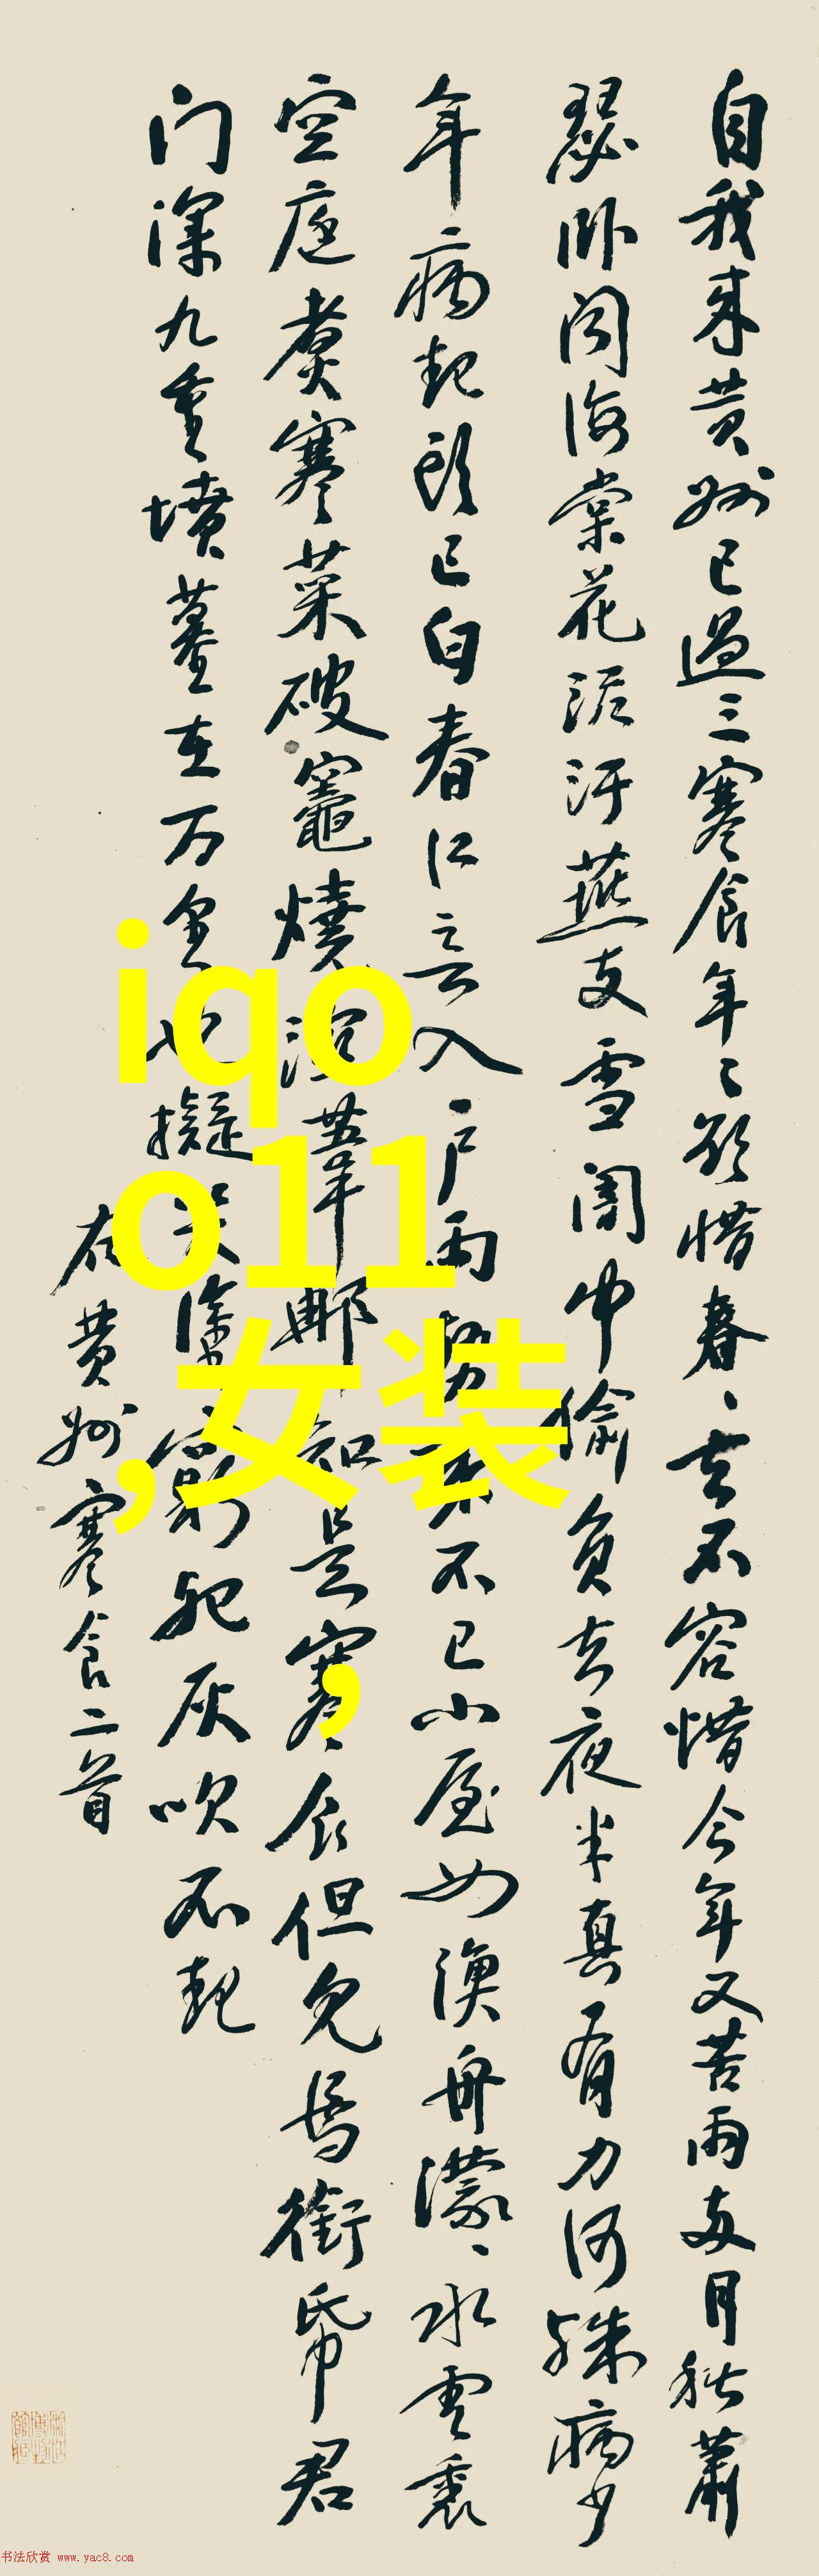 自我来黄州已过三寒食年々欲惜春、去不容惜今年又苦雨两月秋萧
瑟卧闻海棠花泥污燕支雪闇中偷负去夜半真有力何殊病少
年病起头已白春江欲入户雨势来不已小屋如渔舟濛、水云里
空庖煮寒菜破竈烧湿苇那知是寒食但见乌衔帋君
门深九重坟墓在万里也拟哭涂穷死灰吹不起
在黄州寒食二首
iqo
o11
,女装
,
书法欣赏 www.yac8.com